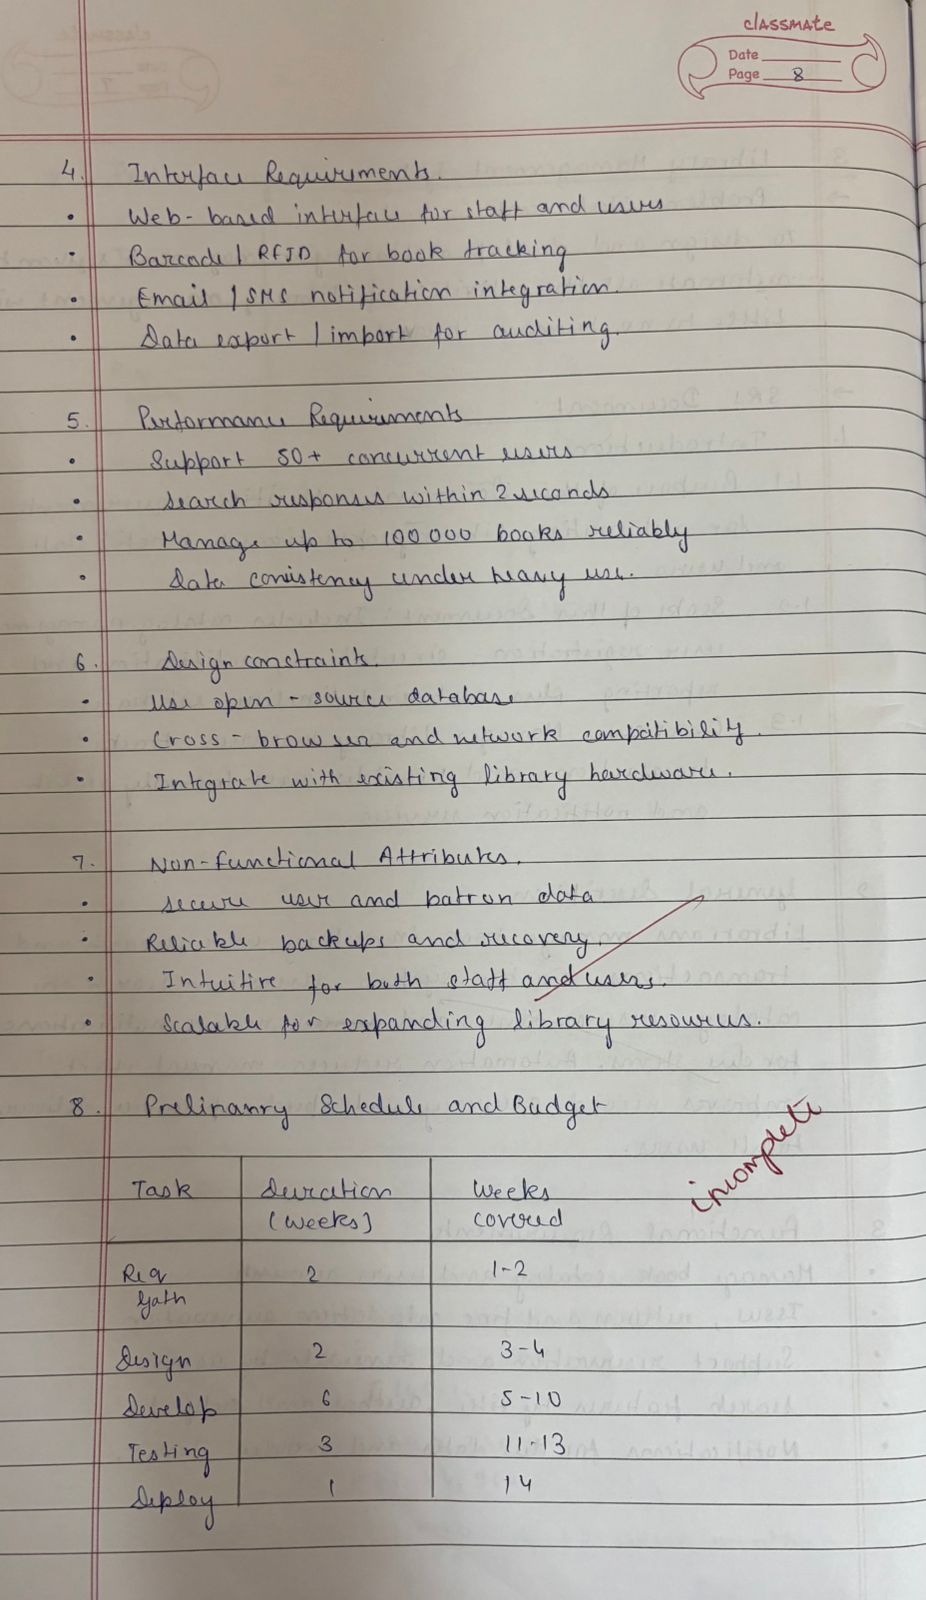 classmate
Date
Page 8
4. Interface Requirements.
• Web-based interface for staff and users
• Barcode / RFID for book tracking
• Email / SMS notification integration.
• Data export / import for auditing.
5. Performance Requirements
• Support 50+ concurrent users
• Search responses within 2 seconds
• Manage up to 100000 books reliably
• Data consistency under heavy use.
6. Design constraints.
• Use open-source database
• Cross-browser and network compatibility.
• Integrate with existing library hardware.
7. Non-Functional Attributes.
• Secure user and patron data
• Reliable backups and recovery.
• Intuitive for both staff and users.
• Scalable for expanding library resources.
8. Prelinanry Schedule and Budget
incomplete
Task Duration Weeks
(weeks) covered
Req 2 1-2
Gath
Design 2 3-4
Develop 6 5-10
Testing 3 11-13
Deploy 1 14